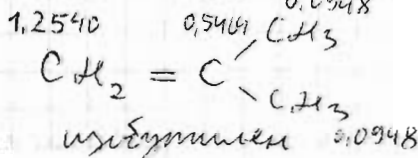 0,0948
1,2540 0,5401 CH3
CH2 = C
CH3
изобутилен 0,0948